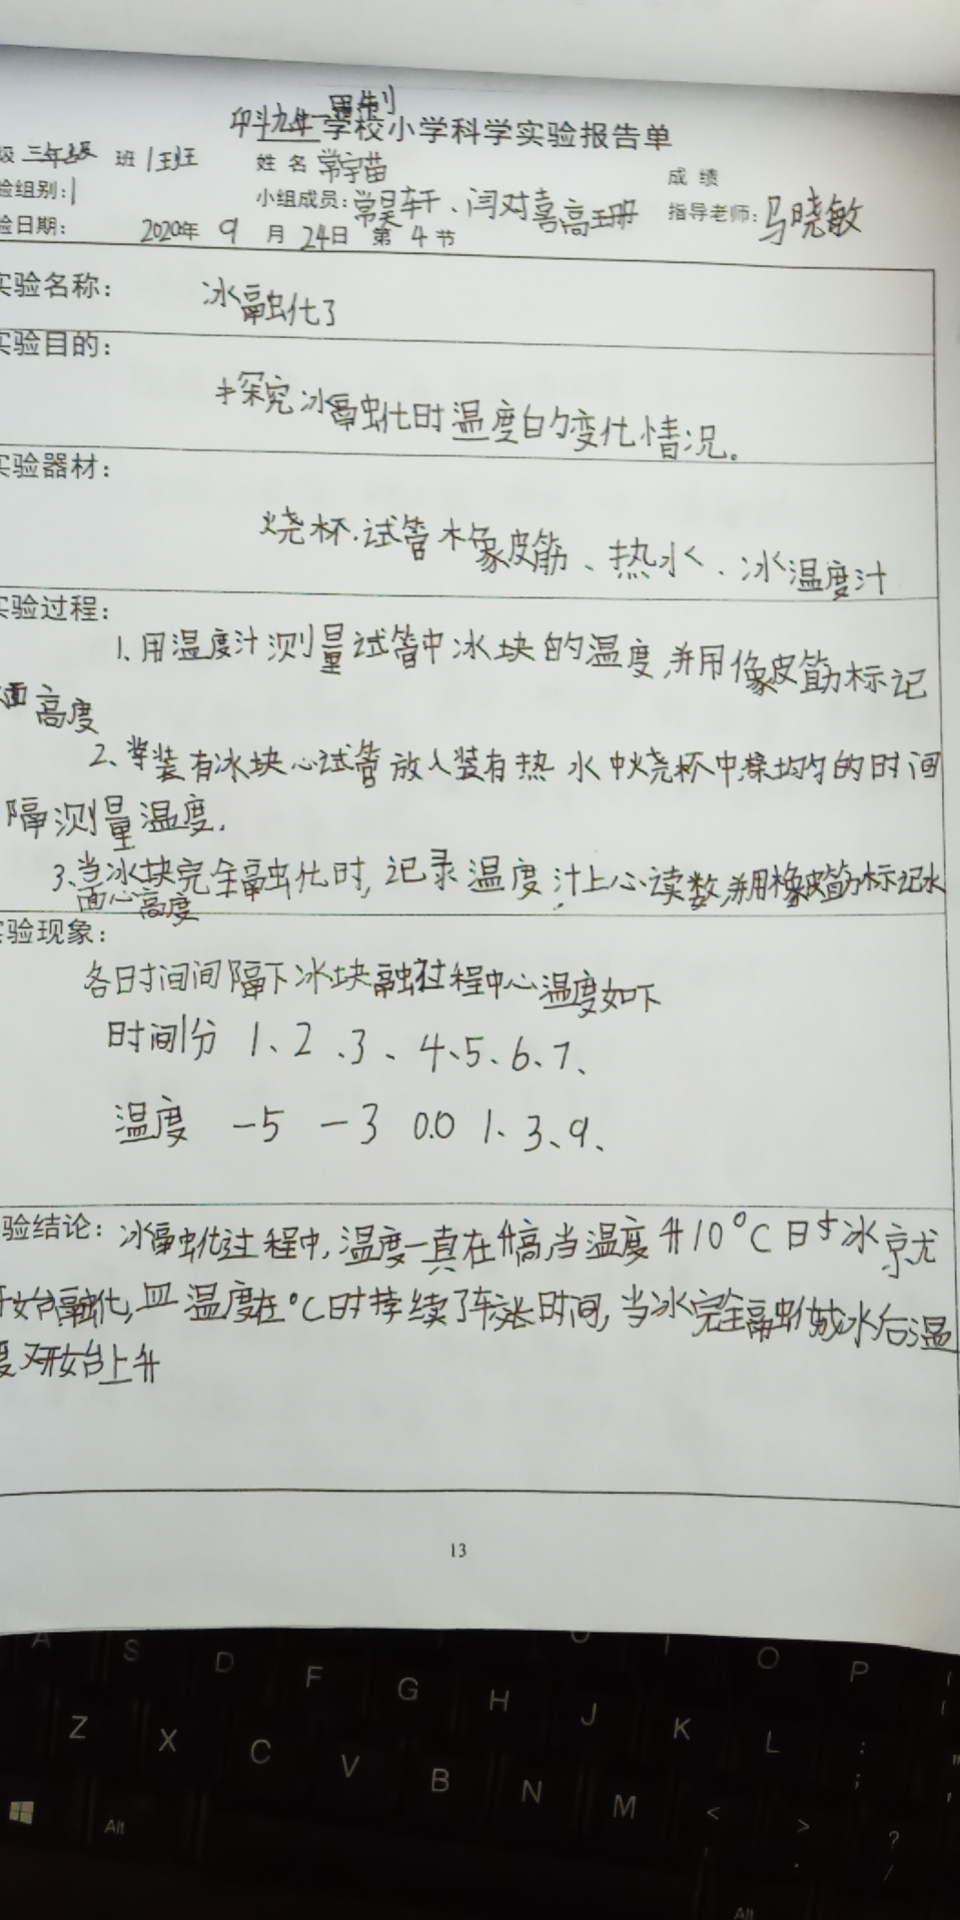 印斗九年一贯制学校小学科学实验报告单
级 三年级 班 1班 姓名 常宇苗 成绩
验组别:1 小组成员:常昊轩、闫对喜高玉珊 指导老师:马晓敏
验日期: 2020年 9 月 24日 第 4 节
实验名称: 冰融化了
实验目的:
探究冰融化时温度的变化情况。
实验器材:
烧杯.试管 橡皮筋、热水、冰温度计
实验过程:
1.用温度计测量试管中冰块的温度,并用橡皮筋标记
面高度
2、装有冰块心试管放入装有热水中烧杯中,均匀的时间
隔测量温度.
3、当冰块完全融化时,记录温度计上心读数,并用橡皮筋标记水
面心高度
实验现象:
各时间间隔下冰块融过程中心温度如下
时间分 1、2、3、4、5、6、7、
温度 -5 -3 0.0 1、3、9、
验结论: 冰融化过程中,温度一直在升高,当温度升10°C时冰就
开始融化,温度在°C时持续了较长时间,当冰完全融化成水后温
度又开始上升
13
A S D F G H J K L O P
Z X C V B N M < > ?
: ; . /
Alt
Alt